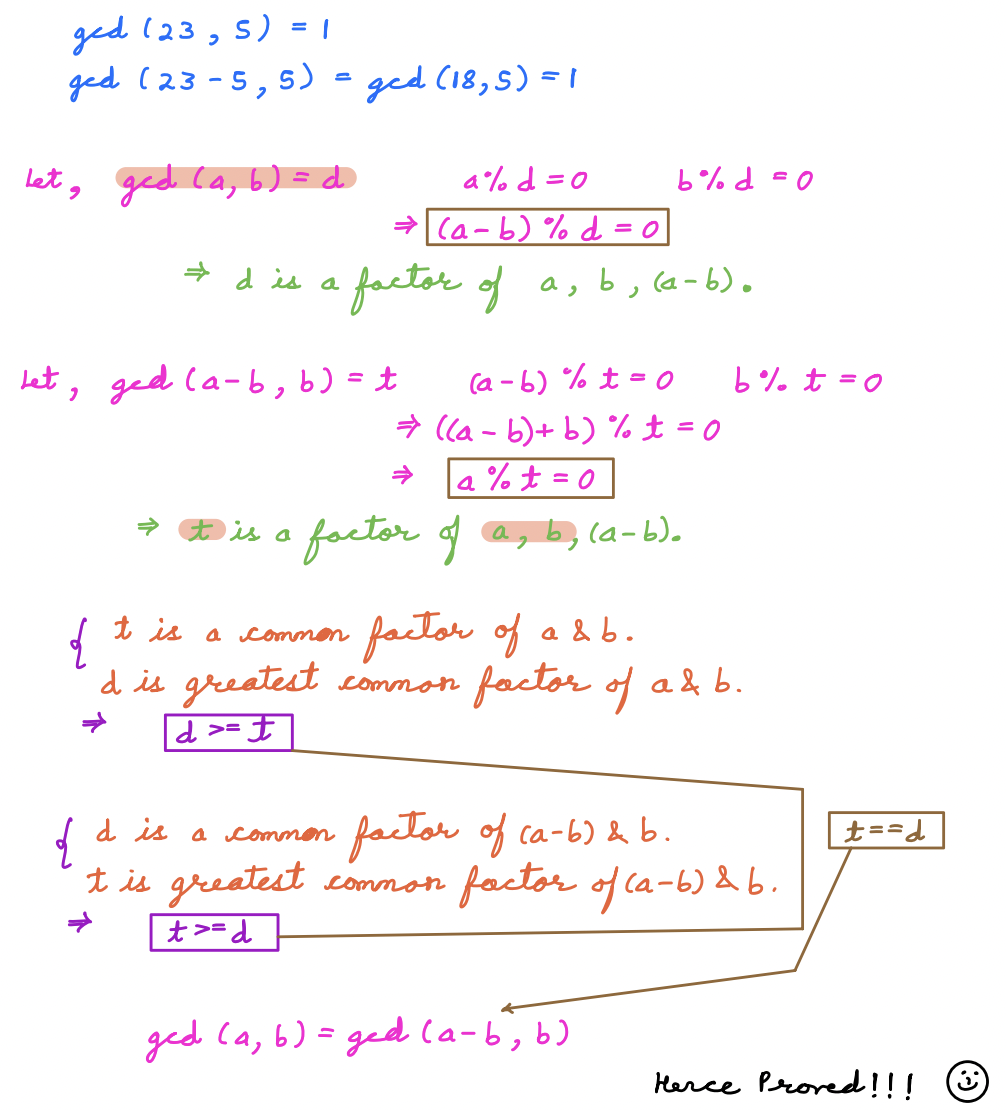 gcd (23, 5) = 1
gcd (23 - 5, 5) = gcd (18, 5) = 1
Let, gcd (a, b) = d a % d = 0 b % d = 0
⇒ (a - b) % d = 0
⇒ d is a factor of a, b, (a - b).
Let, gcd (a - b, b) = t (a - b) % t = 0 b % t = 0
⇒ ((a - b) + b) % t = 0
⇒ a % t = 0
⇒ t is a factor of a, b, (a - b).
{ t is a common factor of a & b.
d is greatest common factor of a & b.
⇒ d >= t
{ d is a common factor of (a - b) & b.
t == d
t is greatest common factor of (a - b) & b.
⇒ t >= d
gcd (a, b) = gcd (a - b, b)
Hence Proved!!!